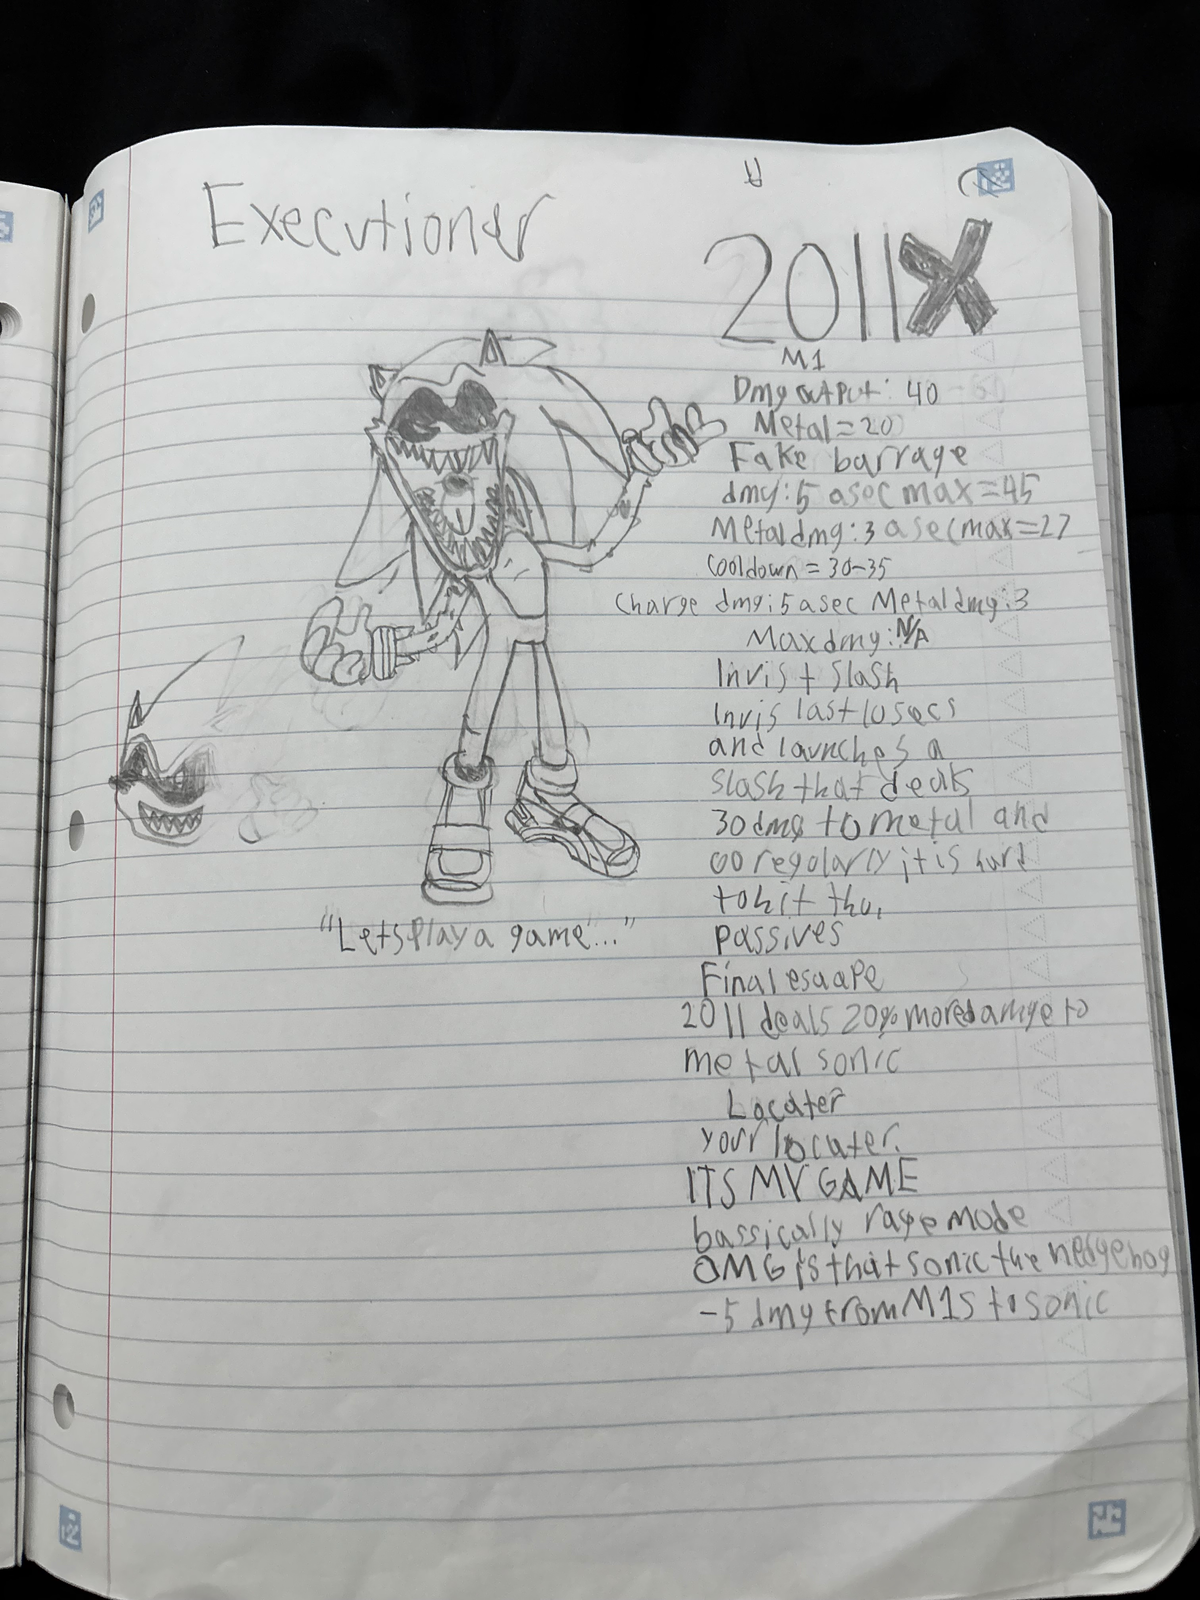 Executioner
2011X
M1
Dmg output: 40
Metal=20
Fake barrage
dmg:5 a sec max=45
Metal dmg:3 a sec max=27
Cooldown=30-35
Charge dmg:5 a sec Metal dmg:3
Max dmg:N/A
Invis + Slash
Invis last 10 secs
and launches a
slash that deals
30 dmg to metal and
regolarly it is hard
to hit tho,
passives
Final escape
2011 deals 20% more damge to
metal sonic
Locater
your locater.
ITS MY GAME
bassically rage mode
OMG is that sonic the hedgehog
-5 dmg from M1s to sonic
"Lets play a game..."